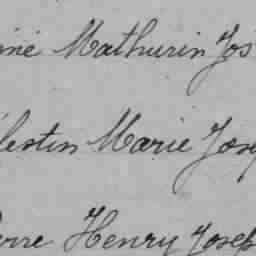 iné Mathurin Jos
lestin Marie Jose
erre Henry Joseph